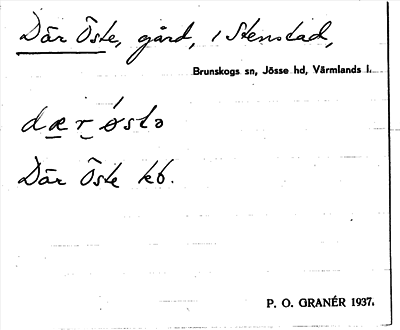 Där Öste, gård, i Stenstad,
Brunskogs sn, Jösse hd, Värmlands l.
dær østə
Där Öste kb.
P. O. GRANÉR 1937.